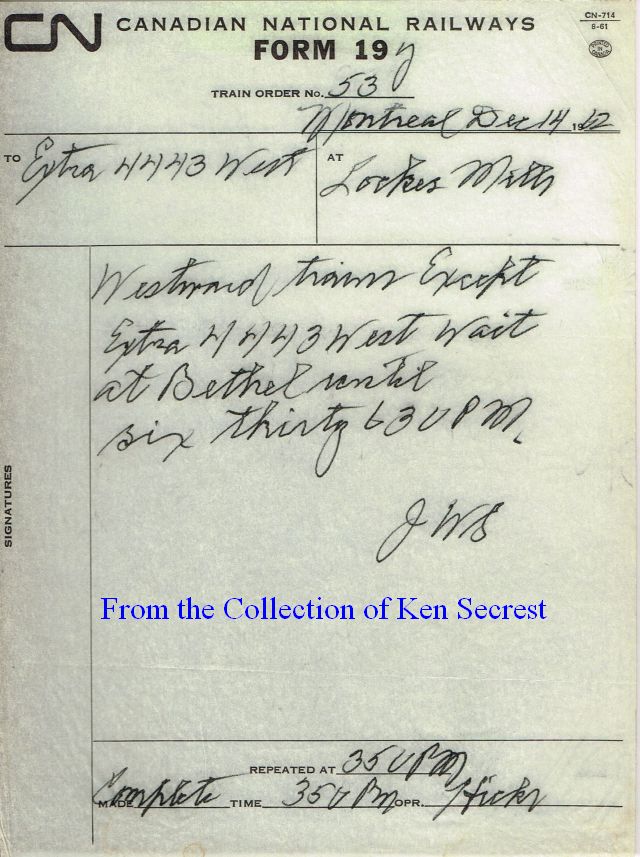 CN CANADIAN NATIONAL RAILWAYS CN-714
8-61
PRINTED IN CANADA
FORM 19 y
TRAIN ORDER No. 53
Montreal Dec 14 1962
TO Extra 4443 West AT Lockes Mills
Westward trains Except
Extra 4443 West Wait
at Bethel until
six thirty 630 PM
JWS
SIGNATURES
From the Collection of Ken Secrest
REPEATED AT 350 PM
MADE Complete TIME 350 PM OPR. Hicks